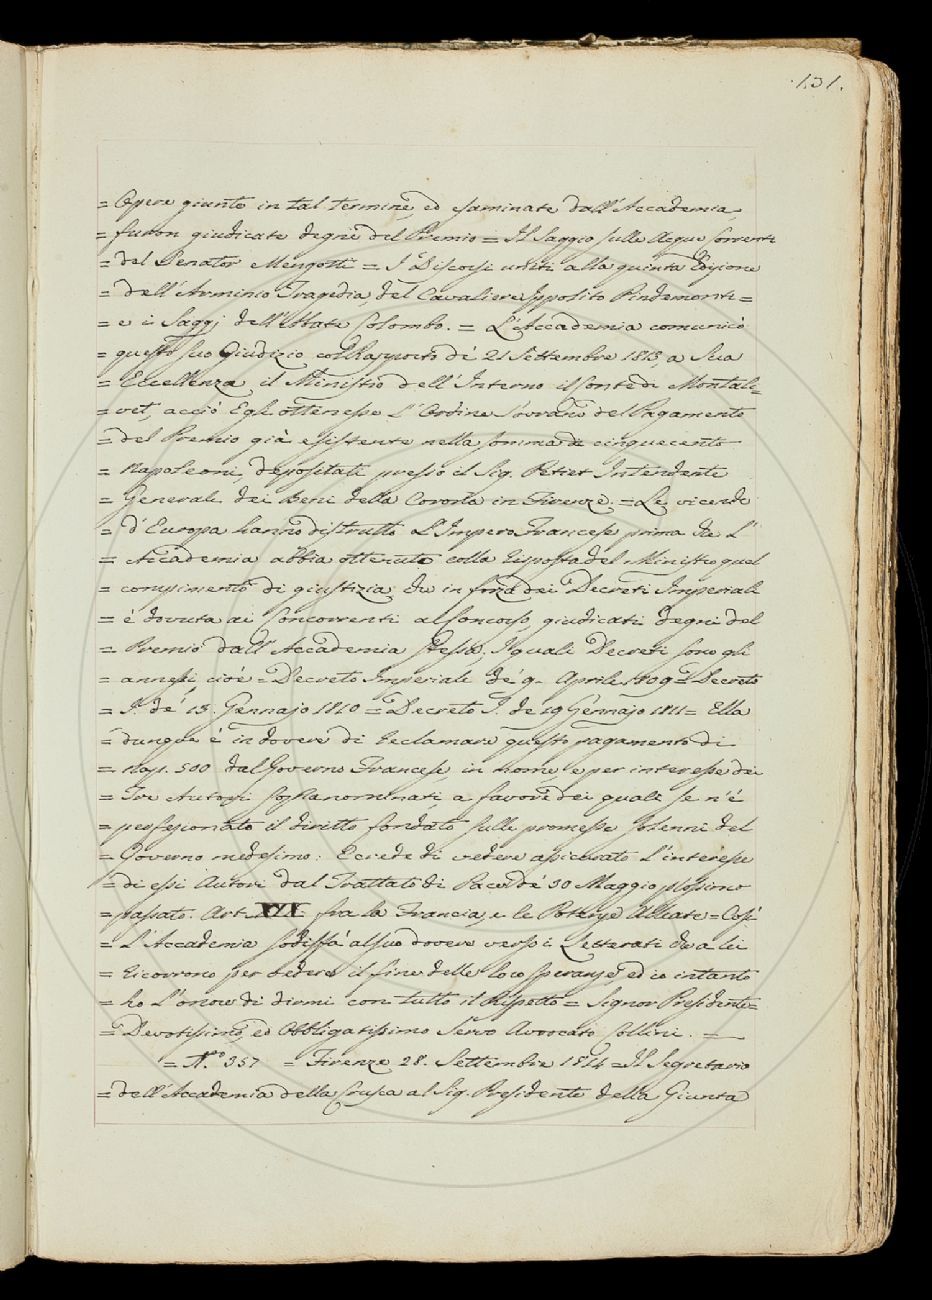 131.
= Opere giunte in tal termine, ed esaminate dall'Accademia,
= furon giudicate degne del Premio = Il Saggio sulle Acque Correnti
= del Senator Mengotti = I Discorsi uniti alla quinta Edizione
= dell'Arminio Tragedia del Cavaliere Ippolito Pindemonti =
= e i Saggj dell'Abate Colombo. = L'Accademia comunicò
= questo suo Giudizio col Rapporto de' 21 Settembre 1813, a Sua
= Eccellenza il Ministro dell'Interno il Conte di Montali=
= vet, acciò Egli ottenesse l'Ordine Sovrano del Pagamento
= del Premio già esistente nella somma di cinquecento
= Napoleoni, depositati presso il Sig. Petiet Intendente
= Generale dei Beni della Corona in Firenze; = Le vicende
= d'Europa hanno distrutto l'Impero Francese prima che l'
= Accademia abbia ottenuto colla risposta del Ministro quel
= compimento di giustizia, che in forza dei Decreti Imperiali
= è dovuta ai Concorrenti al Concorso, giudicati degni del
= Premio dall'Accademia stessa, I quali Decreti sono gli
= annessi cioè = Decreto Imperiale de' 9. Aprile 1809 = Decreto
= I. de' 15. Gennajo 1810 = Decreto I. de 19 Gennajo 1811 = Ella
= dunque è in dovere di reclamare questo pagamento di
= Nap. 500 dal Governo Francese, in nome, e per interesse dei
= Tre Autori soprannominati a favore dei quali se n'è
= perfezionato il diritto fondato sulle promesse solenni del
= Governo medesimo: E crede di vedere assicurato l'interesse
= di essi Autori dal Trattato di Pace de' 30 Maggio prossimo
= passato. Art. XXI. fra la Francia, e le Potenze Alleate = Così
= L'Accademia sodisfà al suo dovere verso i Letterati che a lei
= ricorrono per vedere il fine delle loro speranze, ed io intanto
= ho l'onore di dirmi con tutto il Rispetto = Signor Presidente =
= Devotissimo, ed Obbligatissimo Servo Avvocato Collini. —
= N.º 357 = Firenze 28. Settembre 1814 = Il Segretario
= dell'Accademia della Crusca al Sig. Presidente della Giunta